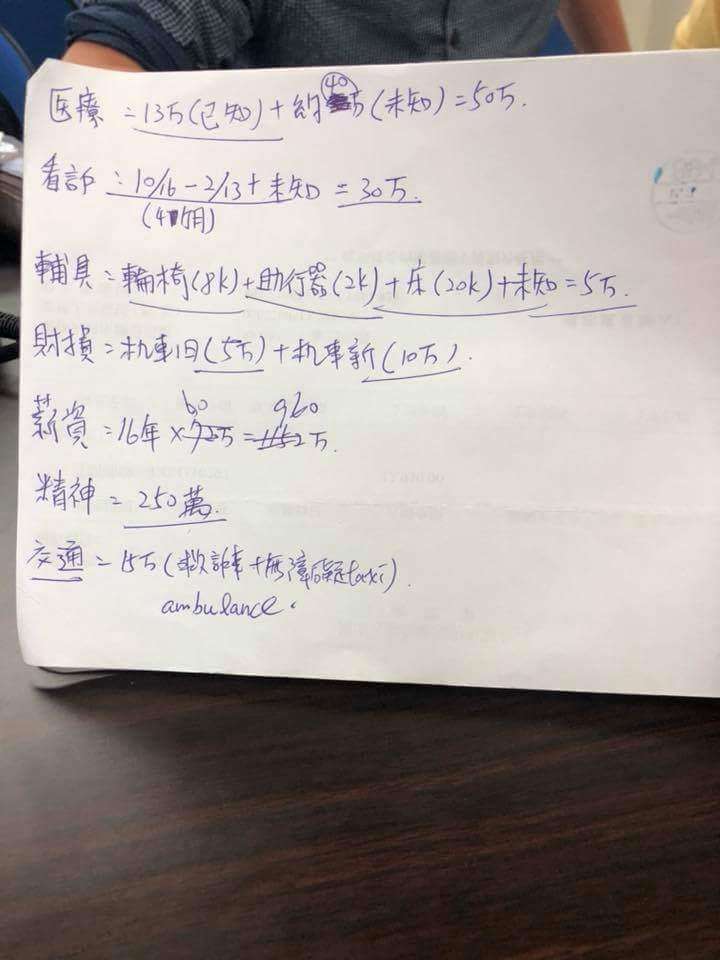 医療 = 13万(已知) + 約40万(未知) = 50万.
看訴 : 10/16 - 2/13 + 未知 = 30万.
(4個月)
輔具 = 輪椅(8k) + 助行器(2k) + 床(20k) + 未知 = 5万.
財損 = 机車旧(5万) + 机車新(10万).
薪資 = 16年 × 60 72万 = 960 1152万.
精神 = 250萬.
交通 = 15万(救訴車 + 無障礙taxi).
ambulance.